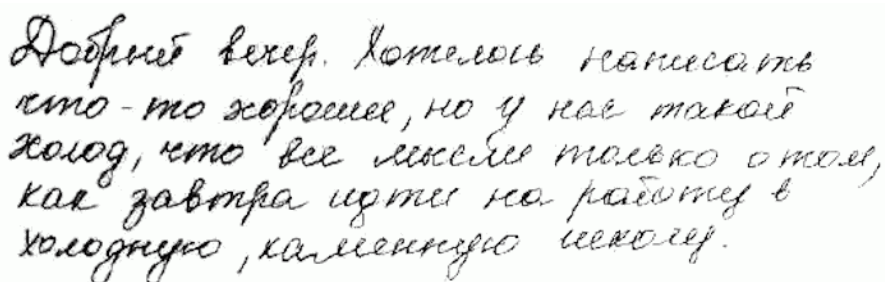 Добрый вечер. Хотелось написать
что-то хорошее, но у нас такой
холод, что все мысли только о том,
как завтра идти на работу в
холодную, каменную школу.